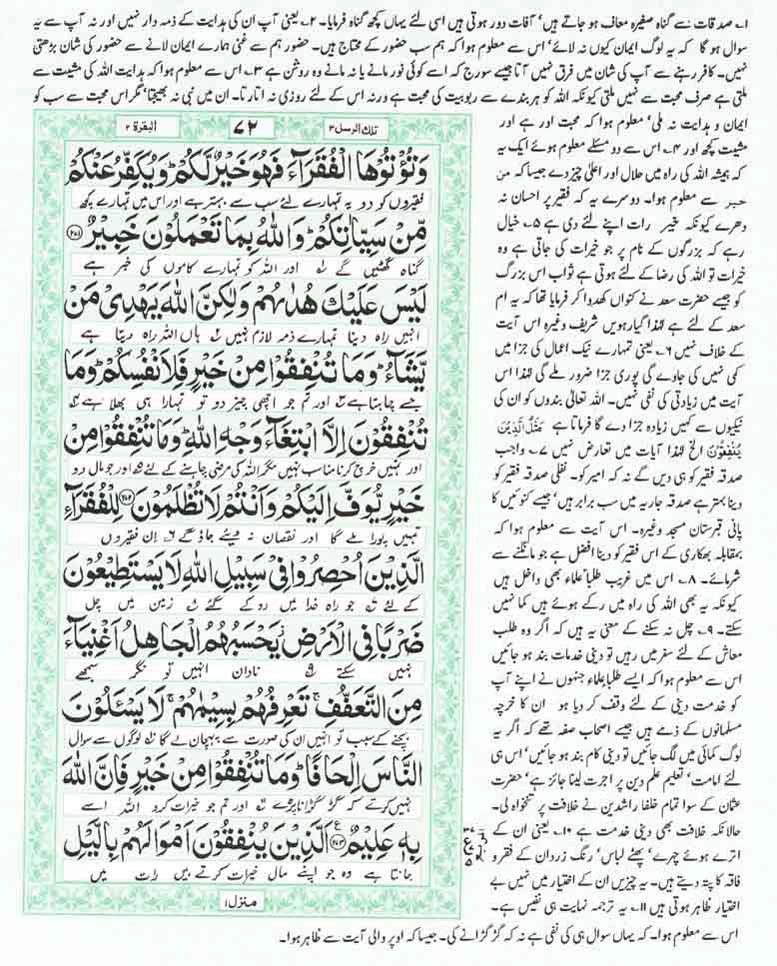 ۱۔ صدقات سے گناہ صغیرہ معاف ہو جاتے ہیں‘ آفات دور ہوتی ہیں اسی لئے یہاں کچھ گناہ فرمایا۔ ۲۔ یعنی آپ ان کی ہدایت کے ذمہ دار نہیں اور نہ آپ سے یہ
سوال ہو گا کہ یہ لوگ ایمان کیوں نہ لائے‘ اس سے معلوم ہوا کہ ہم سب حضور کے محتاج ہیں۔ حضور ہم سے غنی ہمارے ایمان لانے سے حضور کی شان بڑھتی
نہیں۔ کافر رہنے سے آپ کی شان میں فرق نہیں آتا جیسے سورج کہ اسے کوئی نور مانے یا نہ مانے وہ روشن ہے ۳۔ اس سے معلوم ہوا کہ ہدایت اللہ کی مشیت سے
ملتی ہے صرف محبت سے نہیں ملتی کیونکہ اللہ کو ہر بندے سے ربوبیت کی محبت ہے ورنہ اس کے لئے روزی نہ اتارتا۔ ان میں نبی نہ بھیجتا‘ مگر اس محبت سے سب کو
ایمان و ہدایت نہ ملی‘ معلوم ہوا کہ محبت اور ہے اور
مشیت کچھ اور ۴۔ اس سے دو مسئلے معلوم ہوئے ایک یہ
کہ ہمیشہ اللہ کی راہ میں حلال اور اعلیٰ چیز دے جیسا کہ من
خیر سے معلوم ہوا۔ دوسرے یہ کہ فقیر پر احسان نہ
دھرے کیونکہ خیر رات اپنے لئے دی ہے ۵۔ خیال
رہے کہ بزرگوں کے نام پر جو خیرات کی جاتی ہے وہ
خیرات تو اللہ کی رضا کے لئے ہوتی ہے ثواب اس بزرگ
کو جیسے حضرت سعد نے کنواں کھدوا کر فرمایا تھا کہ یہ ام
سعد کے لئے ہے لہٰذا گیارہویں شریف وغیرہ اس آیت
کے خلاف نہیں ۶۔ یعنی تمہارے نیک اعمال کی جزا میں
کمی نہیں کی جاوے گی پوری جزا ضرور ملے گی لہٰذا اس
آیت میں زیادتی کی نفی نہیں۔ اللہ تعالیٰ بندوں کو ان کی
نیکیوں سے کہیں زیادہ جزا دے گا فرماتا ہے مَثَلُ الَّذِیْنَ
یُنْفِقُوْنَ الخ لہٰذا آیات میں تعارض نہیں ۷۔ واجب
صدقہ فقیر کو ہی دیں گے نہ کہ امیر کو۔ نفلی صدقہ فقیر کو
دینا بہتر ہے صدقہ جاریہ میں سب برابر ہیں‘ جیسے کنوئیں کا
پانی قبرستان مسجد وغیرہ۔ اس آیت سے معلوم ہوا کہ
بمقابلہ بھکاری کے اس فقیر کو دینا افضل ہے جو مانگنے سے
شرمائے۔ ۸۔ اس میں غریب طلبا‘ علماء بھی داخل ہیں
کیونکہ یہ بھی اللہ کی راہ میں رکے ہوئے ہیں کما نہیں
سکتے۔ ۹۔ چل نہ سکنے کے معنی یہ ہیں کہ اگر وہ طلب
معاش کے لئے سفر میں رہیں تو دینی خدمات بند ہو جائیں
اس سے معلوم ہوا کہ ایسے طلبا‘ علماء جنہوں نے اپنے آپ
کو خدمت دینی کے لئے وقف کر دیا ہو ان کا خرچہ
مسلمانوں کے ذمے ہیں جیسے اصحاب صفہ تھے کہ اگر یہ
لوگ کمائی میں لگ جائیں تو دینی کام بند ہو جائیں‘ اس ہی
لئے امامت‘ تعلیم علم دین پر اجرت لینا جائز ہے‘ حضرت
عثمان کے سوا تمام خلفا راشدین نے خلافت پر تنخواہ لی۔
حالانکہ خلافت بھی دینی خدمت ہے ۱۰۔ یعنی ان کے
اترے ہوئے چہرے‘ پھٹے لباس‘ رنگ زرد ان کے فقر و
فاقہ کا پتہ دیتے ہیں۔ یہ چیزیں ان کے اختیار میں نہیں بے
اختیار ظاہر ہوتی ہیں ۱۱۔ یہ ترجمہ نہایت ہی نفیس ہے۔
اس سے معلوم ہوا۔ کہ یہاں سوال ہی کی نفی ہے نہ کہ گڑگڑانے کی۔ جیسا کہ اوپر والی آیت سے ظاہر ہوا۔
تلک الرسل ۳
۷۲
البقرة ۲
وَتُؤْتُوهَا الْفُقَرَآءَ فَهُوَ خَيْرٌ لَّكُمْ ؕ وَيُكَفِّرُ عَنْكُمْ
فقیروں کو دو یہ تمہارے لئے سب سے بہتر ہے اور اس میں تمہارے کچھ
مِّنْ سَيِّاٰتِكُمْ ؕ وَاللّٰهُ بِمَا تَعْمَلُوْنَ خَبِيْرٌ ﴿۲۷۱﴾
گناہ گھٹیں گے اور اللہ کو تمہارے کاموں کی خبر ہے
لَيْسَ عَلَيْكَ هُدٰىهُمْ وَلٰكِنَّ اللّٰهَ يَهْدِىْ مَنْ
انہیں راہ دینا تمہارے ذمہ لازم نہیں ہاں اللہ راہ دیتا ہے
يَّشَآءُ ؕ وَمَا تُنْفِقُوْا مِنْ خَيْرٍ فَلِاَنْفُسِكُمْ ؕ وَمَا
جسے چاہتا ہے اور تم جو اچھی چیز دو تو تمہارا ہی بھلا ہے
تُنْفِقُوْنَ اِلَّا ابْتِغَآءَ وَجْهِ اللّٰهِ ؕ وَمَا تُنْفِقُوْا مِنْ
اور تمہیں خرچ کرنا مناسب نہیں مگر اللہ کی مرضی چاہنے کے لئے اور جو مال دو
خَيْرٍ يُّوَفَّ اِلَيْكُمْ وَاَنْتُمْ لَا تُظْلَمُوْنَ ﴿۲۷۲﴾ لِلْفُقَرَآءِ
تمہیں پورا ملے گا اور نقصان نہ دیئے جاؤ گے ان فقیروں
الَّذِيْنَ اُحْصِرُوْا فِىْ سَبِيْلِ اللّٰهِ لَا يَسْتَطِيْعُوْنَ
کے لئے جو راہ خدا میں روکے گئے زمین میں چل
ضَرْبًا فِى الْاَرْضِ ؗ يَحْسَبُهُمُ الْجَاهِلُ اَغْنِيَآءَ
نہیں سکتے نادان انہیں تونگر سمجھے
مِنَ التَّعَفُّفِ ۚ تَعْرِفُهُمْ بِسِيْمٰهُمْ ۚ لَا يَسْئَلُوْنَ
بچنے کے سبب تو انہیں ان کی صورت سے پہچان لے گا لوگوں سے سوال
النَّاسَ اِلْحَافًا ؕ وَمَا تُنْفِقُوْا مِنْ خَيْرٍ فَاِنَّ اللّٰهَ
نہیں کرتے کہ گڑگڑانا پڑے اور تم جو خیرات کرو اللہ اسے
بِهٖ عَلِيْمٌ ﴿۲۷۳﴾ اَلَّذِيْنَ يُنْفِقُوْنَ اَمْوَالَهُمْ بِالَّيْلِ
جانتا ہے وہ جو اپنے مال خیرات کرتے ہیں رات میں
منزل ۱